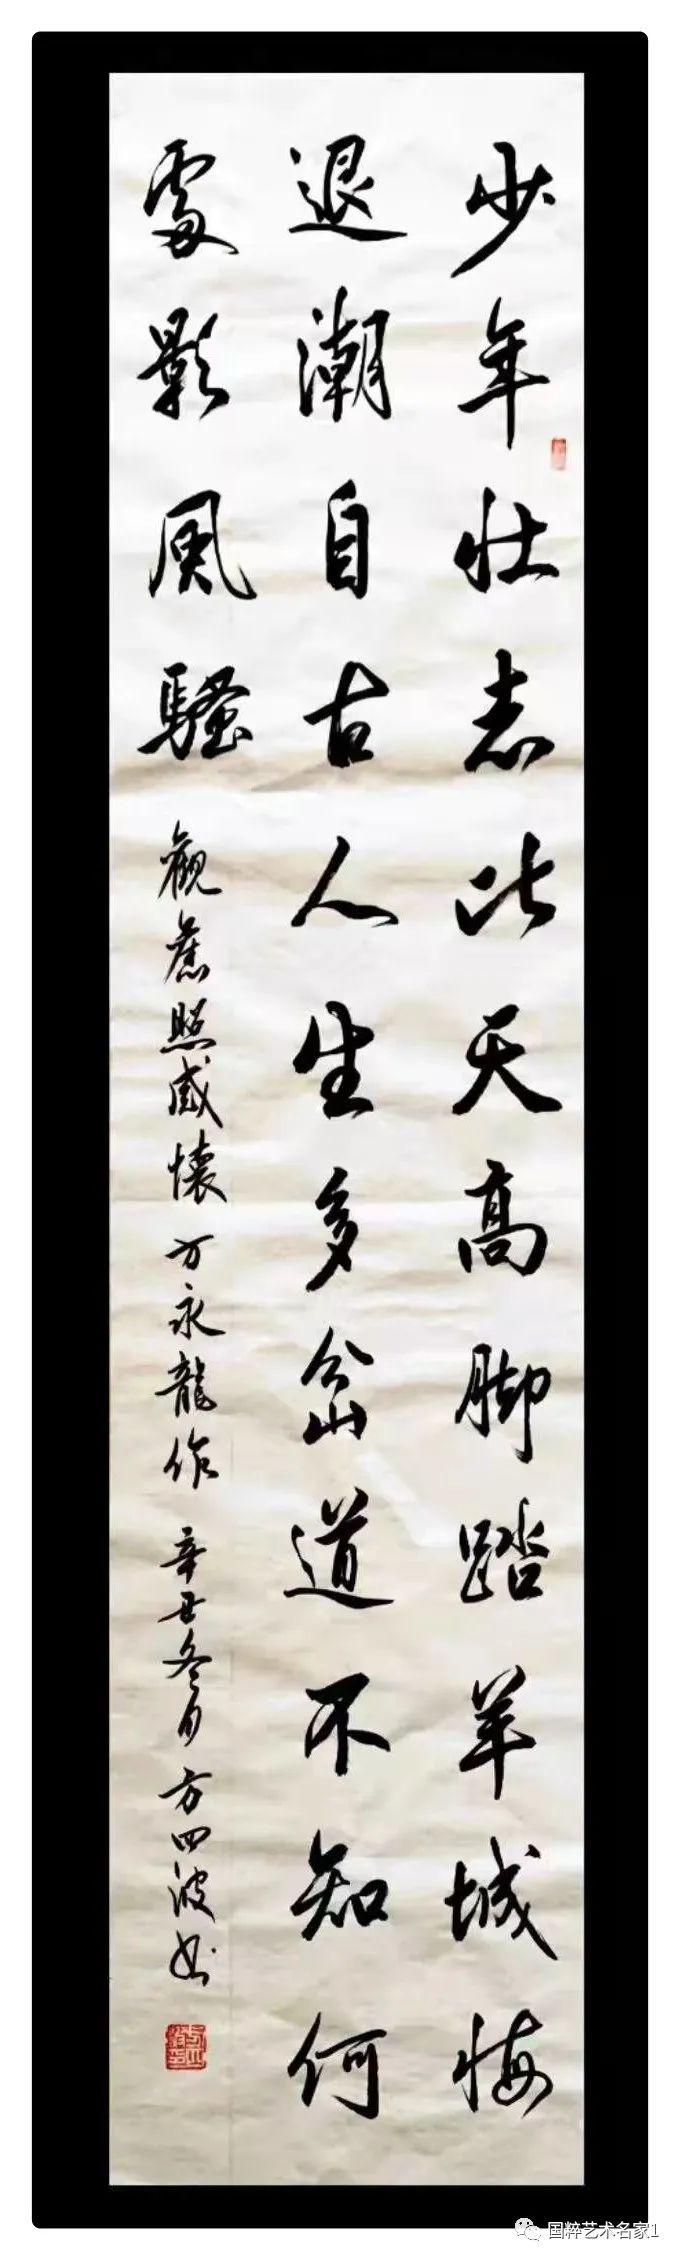 少年壮志比天高脚踏羊城悔
退潮自古人生多岔道不知何
處影風騷
觀舊照感懷 方永龍作 辛丑冬月 方四波书
国粹艺术名家1